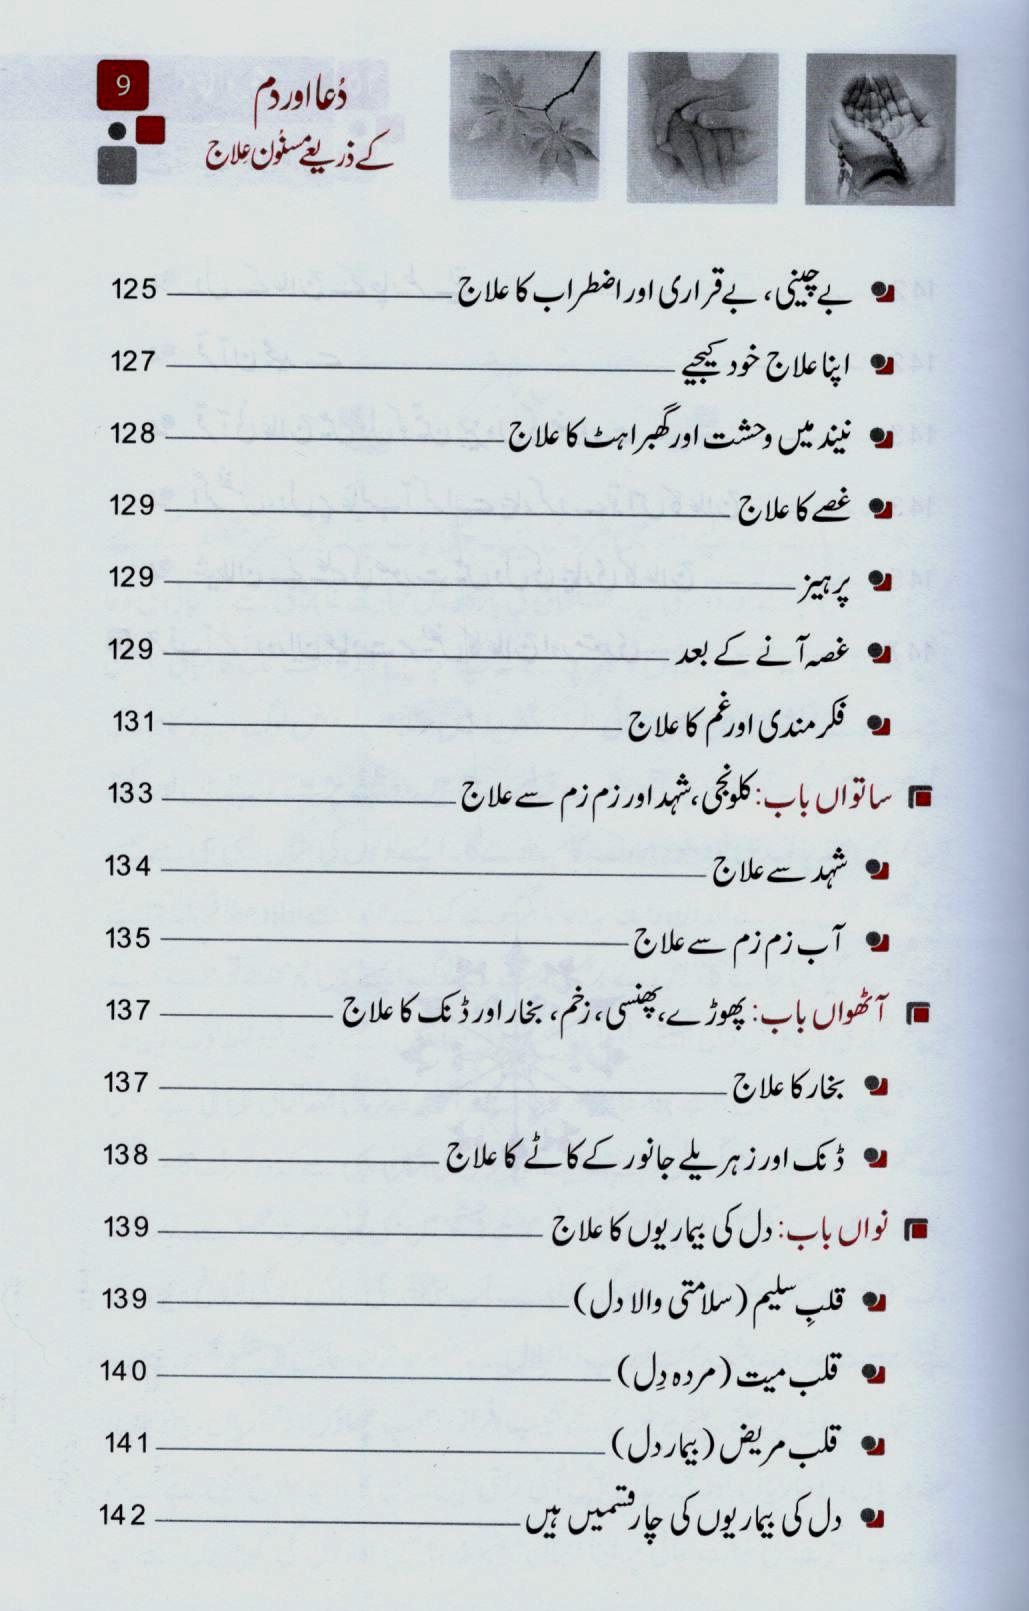 9
دُعا اور دَم
کے ذریعے مسنُون عِلاج
بے چینی، بے قراری اور اضطراب کا علاج 125
اپنا علاج خود کیجیے 127
نیند میں وحشت اور گھبراہٹ کا علاج 128
غصے کا علاج 129
پرہیز 129
غصہ آنے کے بعد 129
فکر مندی اور غم کا علاج 131
ساتواں باب: کلونجی، شہد اور زم زم سے علاج 133
شہد سے علاج 134
آب زم زم سے علاج 135
آٹھواں باب: پھوڑے، پھنسی، زخم، بخار اور ڈنک کا علاج 137
بخار کا علاج 137
ڈنک اور زہریلے جانور کے کاٹے کا علاج 138
نواں باب: دل کی بیماریوں کا علاج 139
قلبِ سلیم (سلامتی والا دل) 139
قلب میت (مردہ دِل) 140
قلب مریض (بیمار دل) 141
دل کی بیماریوں کی چار قسمیں ہیں 142